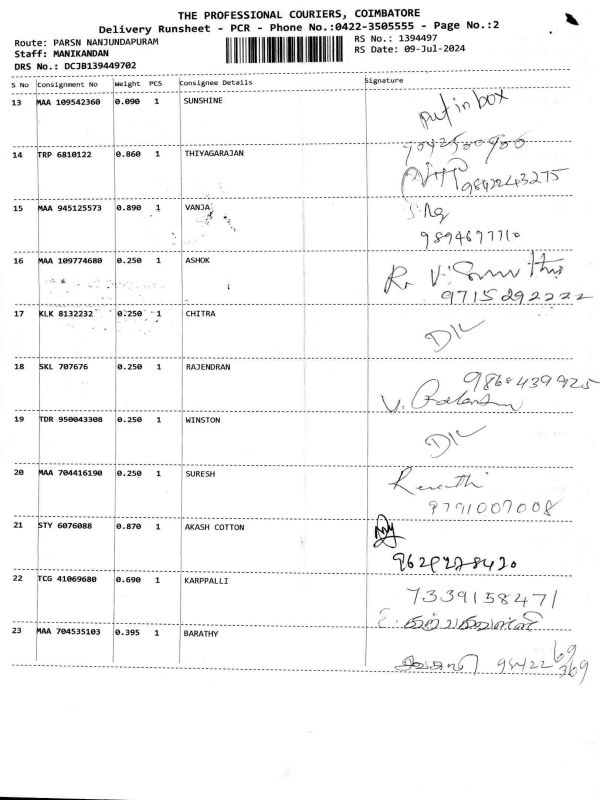 THE PROFESSIONAL COURIERS, COIMBATORE
Delivery Runsheet - PCR - Phone No.:0422-3505555 - Page No.:2
Route: PARSN NANJUNDAPURAM RS No.: 1394497
Staff: MANIKANDAN RS Date: 09-Jul-2024
DRS No.: DCJB139449702
S No Consignment No Weight PCS Consignee Details Signature
13 MAA 109542360 0.090 1 SUNSHINE
put in box
14 TRP 6810122 0.860 1 THIYAGARAJAN
9842243275
15 MAA 945125573 0.890 1 VANJA
9894697710
16 MAA 109774680 0.250 1 ASHOK
9715292222
17 KLK 8132232 0.250 1 CHITRA
D/L
18 SKL 707676 0.250 1 RAJENDRAN
19 TDR 950043308 0.250 1 WINSTON
D/L
20 MAA 704416190 0.250 1 SURESH
Revathi
9791007008
21 STY 6076088 0.870 1 AKASH COTTON
22 TCG 41069680 0.690 1 KARPPALLI
7339158471
23 MAA 704535103 0.395 1 BARATHY
98422 69369